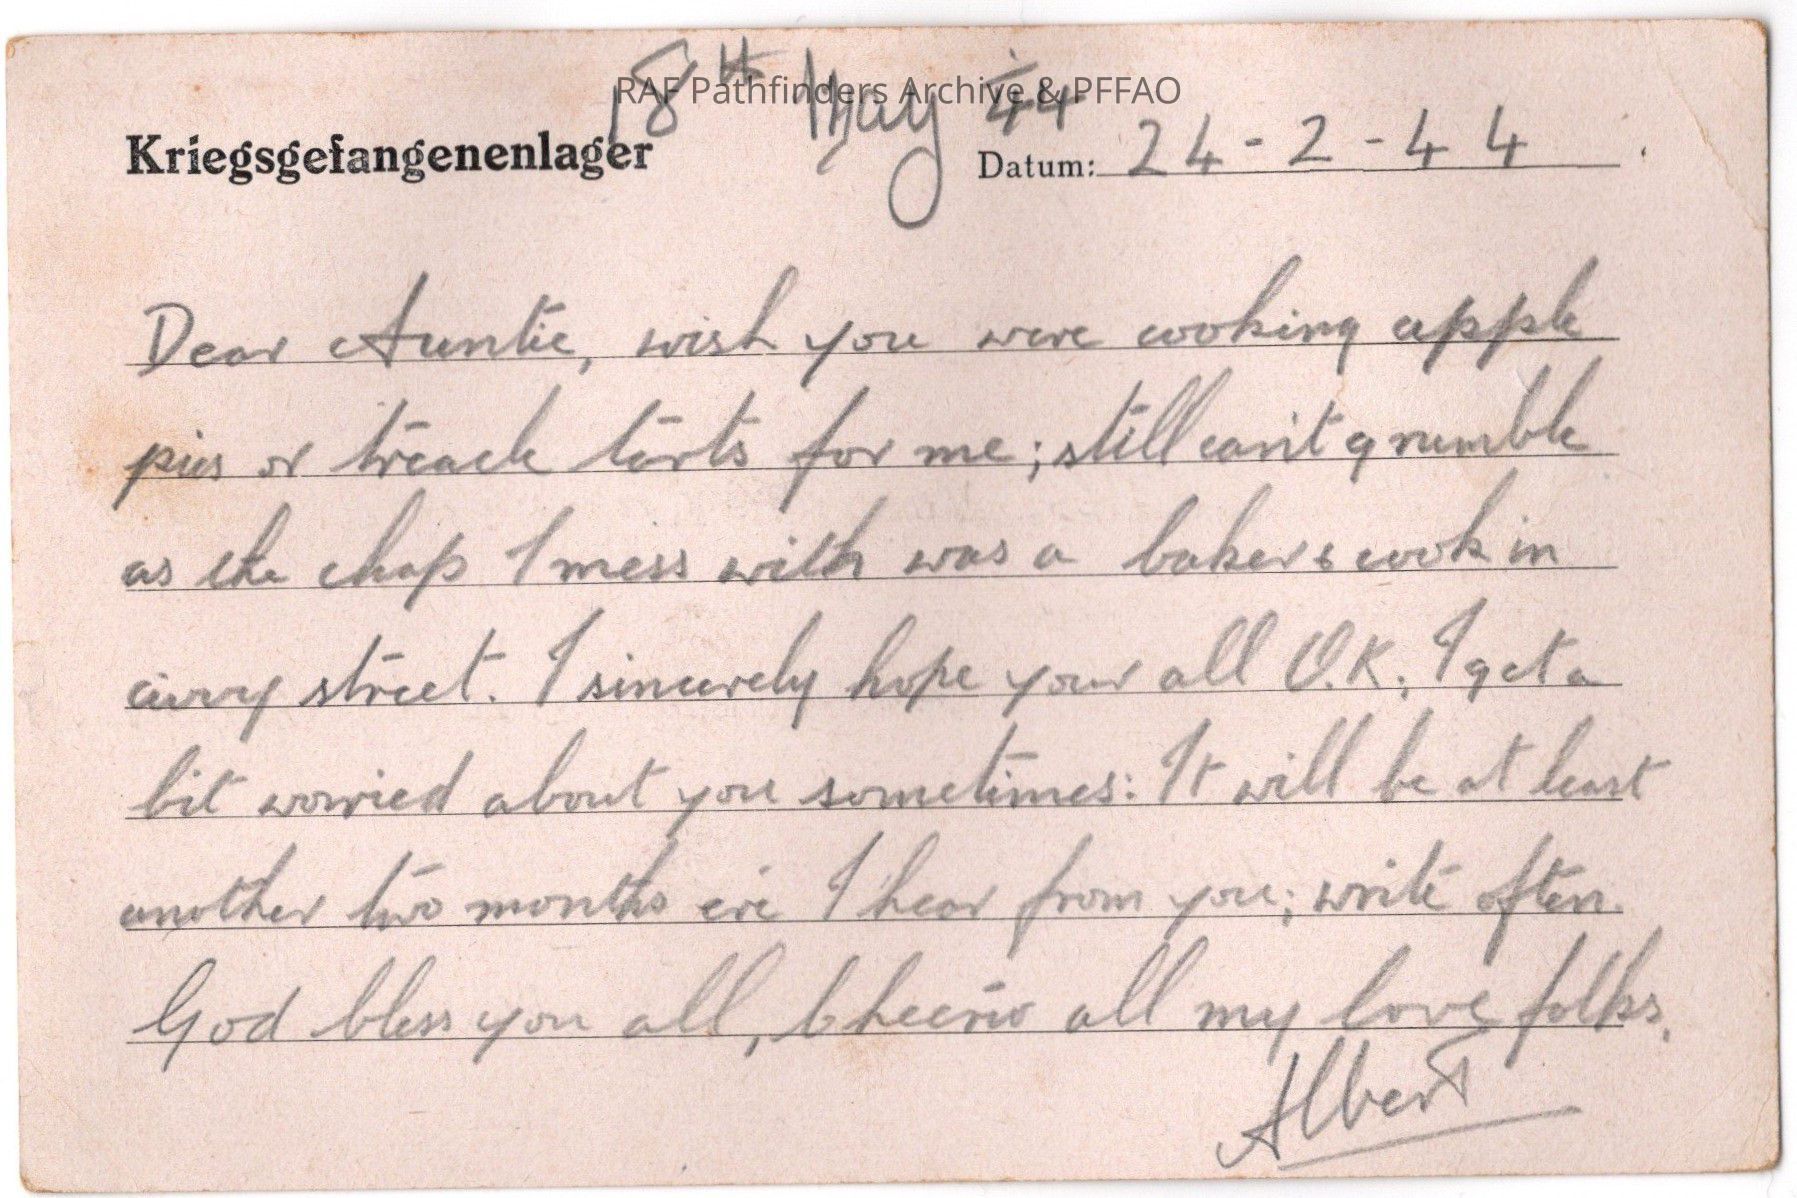 RAF Pathfinders Archive & PFFAO
18th May 44
Kriegsgefangenenlager
Datum: 24-2-44
Dear Auntie, wish you were cooking apple
pies or treacle tarts for me; still can't grumble
as the chap I mess with was a baker & cook in
civvy street. I sincerely hope your all O.K. I get a
bit worried about you sometimes: It will be at least
another two months ere I hear from you; write often.
God bless you all, Cheerio all my love folks.
Albert